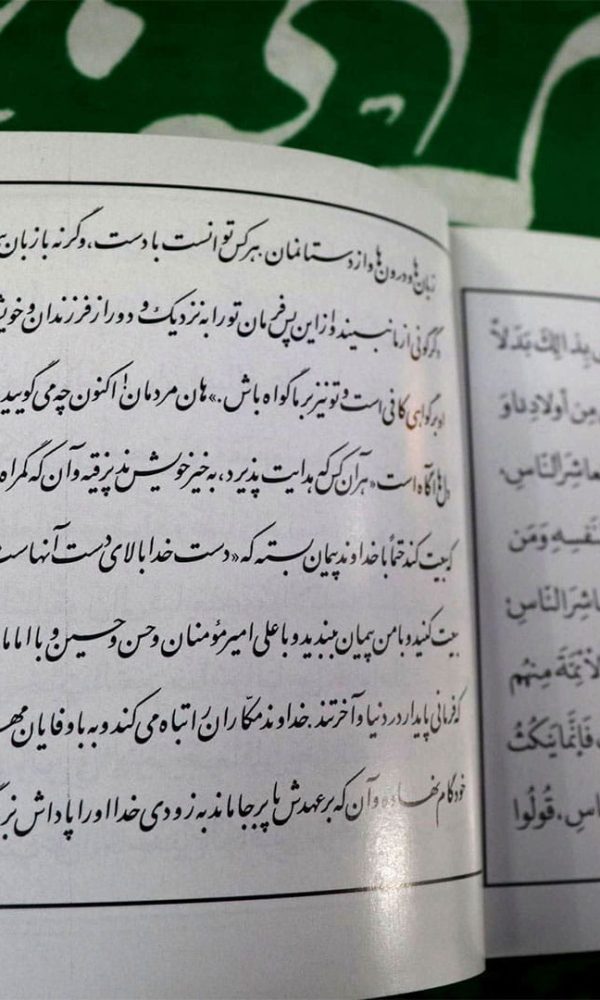 زبان‌ها و درون‌ها و از دستانمان. هر کس توانست با دست، وگرنه با زبان
دگرگونی از ما نبیند و از این پس فرمان تو را به نزدیک و دور از فرزندان و
او بر گواهی کافی است و تو نیز بر ما گواه باش.» هان مردمان! اکنون چه می‌گویید
دل‌ها آگاه است «هر آن کس که هدایت پذیرد، به خیر خویش پذیرفته و آن که گمراه
که بیعت کند حتماً با خداوند پیمان بسته که «دست خدا بالای دست آنهاست
بیعت کنید و با من پیمان ببندید و با علی امیر مؤمنان و حسن و حسین و با
که فرمانی پایدار در دنیا و آخرتند. خداوند مکّاران را تباه می‌کند و به باوفایان
خود گام نهاده و آن که بر عهدش پا برجا ماند به زودی خدا او را پاداش
بِذٰلِكَ بَدَلاً
مِن أولادِنا وَ
النّاسِ،
وَ مَن
النّاسِ:
مِنهُم
فَإِنَّما يَنكُثُ
قُولُوا